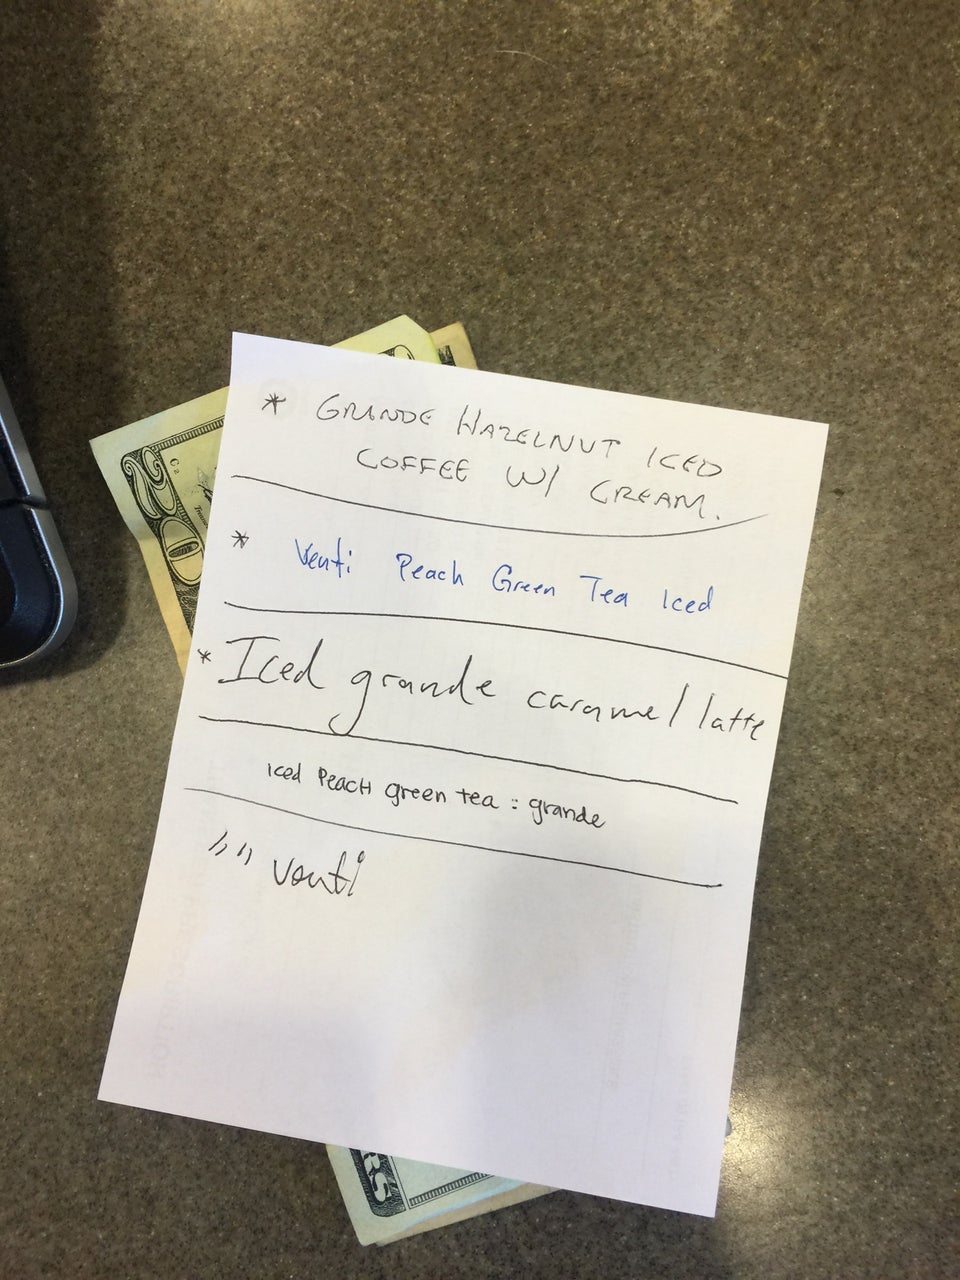 * GRANDE HAZELNUT ICED
COFFEE W/ CREAM.
* Venti Peach Green Tea Iced
* Iced grande caramel latte
Iced Peach green tea : grande
" " venti
20